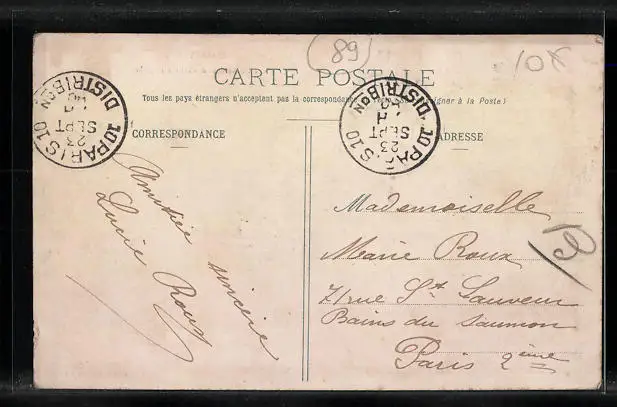 (89)
10 F
CARTE POSTALE
Tous les pays étrangers n'acceptent pas la correspondance
à la Poste)
CORRESPONDANCE
ADRESSE
PARIS 10
DISTRIBON
23
SEPT
10
PARIS 10
DISTRIBON
23
SEPT
10
Amitiée sincère
Lucie Roux
Mademoiselle
Marie Roux
71 rue St Sauveur
Bains du Saumon
Paris 2ème